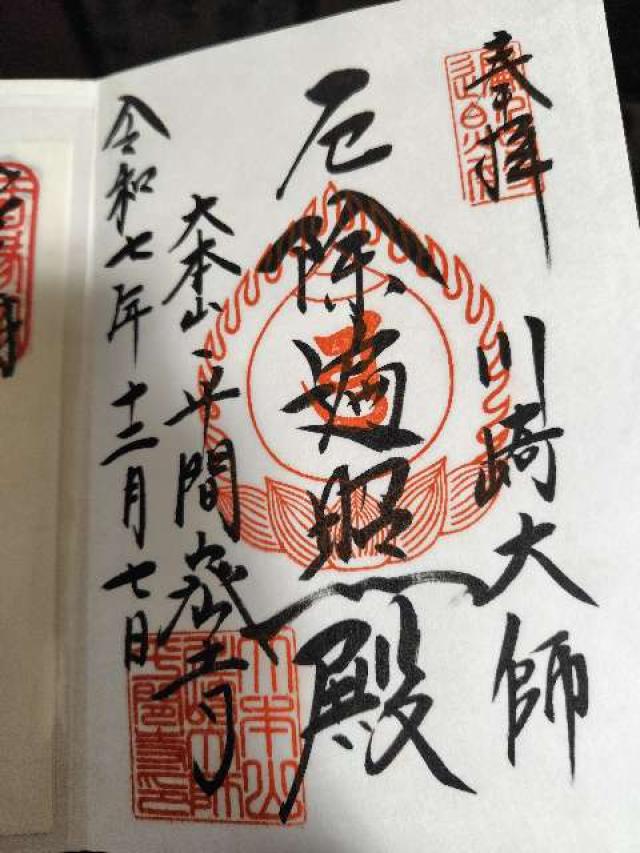 奉拝
川崎大師
厄除遍照殿
大本山平間寺
令和七年十二月七日